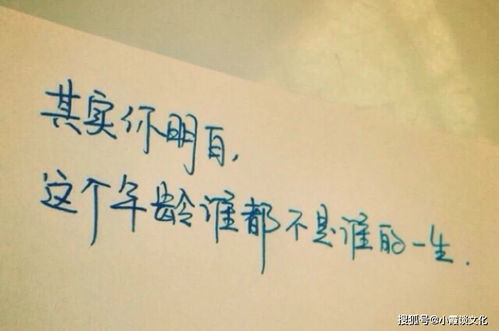 其实你明白,
这个年龄谁都不是谁的一生.
搜狐号@小霞谈文化